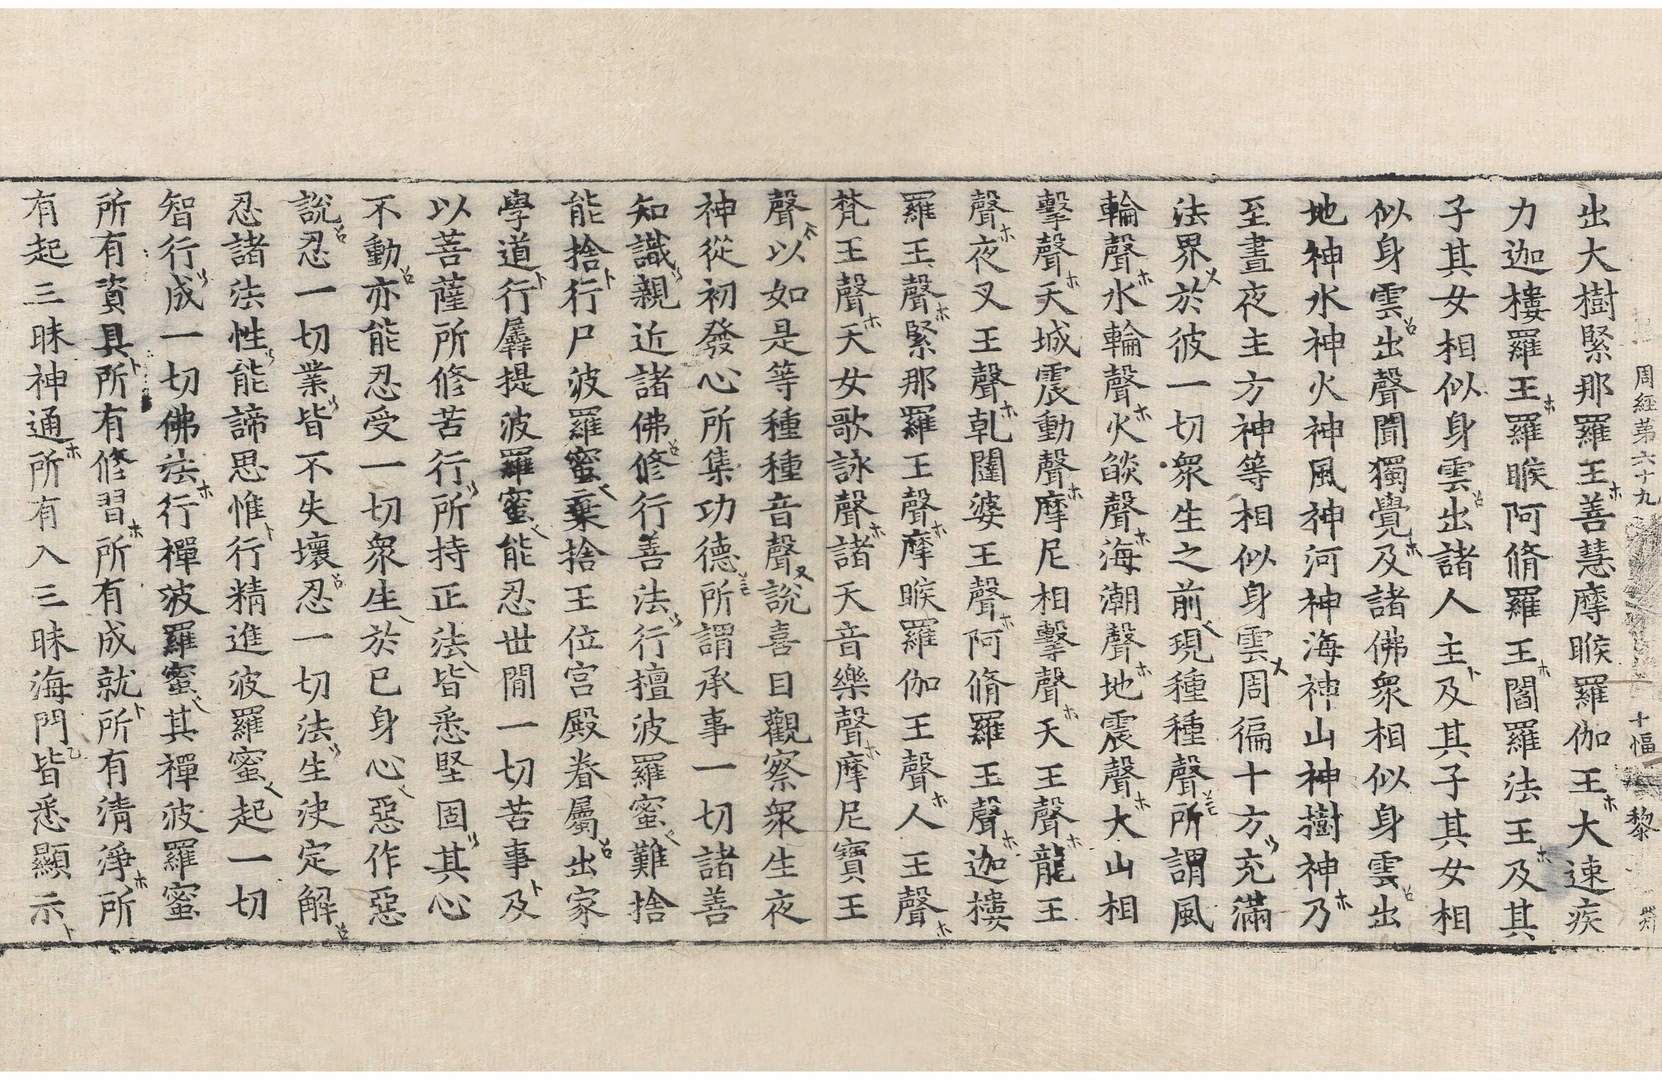 周經第六十九 十幅 黎
出大樹緊那羅王善慧摩睺羅伽王大速疾
力迦樓羅王羅睺阿脩羅王閻羅法王及其
子其女相似身雲出諸人主及其子其女相
似身雲出聲聞獨覺及諸佛衆相似身雲出
地神水神火神風神河神海神山神樹神乃
至晝夜主方神等相似身雲周徧十方充滿
法界於彼一切衆生之前現種種聲所謂風
輪聲水輪聲火燄聲海潮聲地震聲大山相
擊聲天城震動聲摩尼相擊聲天王聲龍王
聲夜叉王聲乹闥婆王聲阿脩羅王聲迦樓
羅王聲緊那羅王聲摩睺羅伽王聲人王聲
梵王聲天女歌詠聲諸天音樂聲摩尼寶王
聲以如是等種種音聲說喜目觀察衆生夜
神從初發心所集功德所謂承事一切諸善
知識親近諸佛修行善法行檀波羅蜜難捨
能捨行尸波羅蜜棄捨王位宫殿眷屬出家
學道行羼提波羅蜜能忍世間一切苦事及
以菩薩所修苦行所持正法皆悉堅固其心
不動亦能忍受一切衆生於已身心惡作惡
說忍一切業皆不失壞忍一切法生决定解
忍諸法性能諦思惟行精進波羅蜜起一切
智行成一切佛法行禪波羅蜜其禪波羅蜜
所有資具所有修習所有成就所有清淨所
有起三昧神通所有入三昧海門皆悉顯示